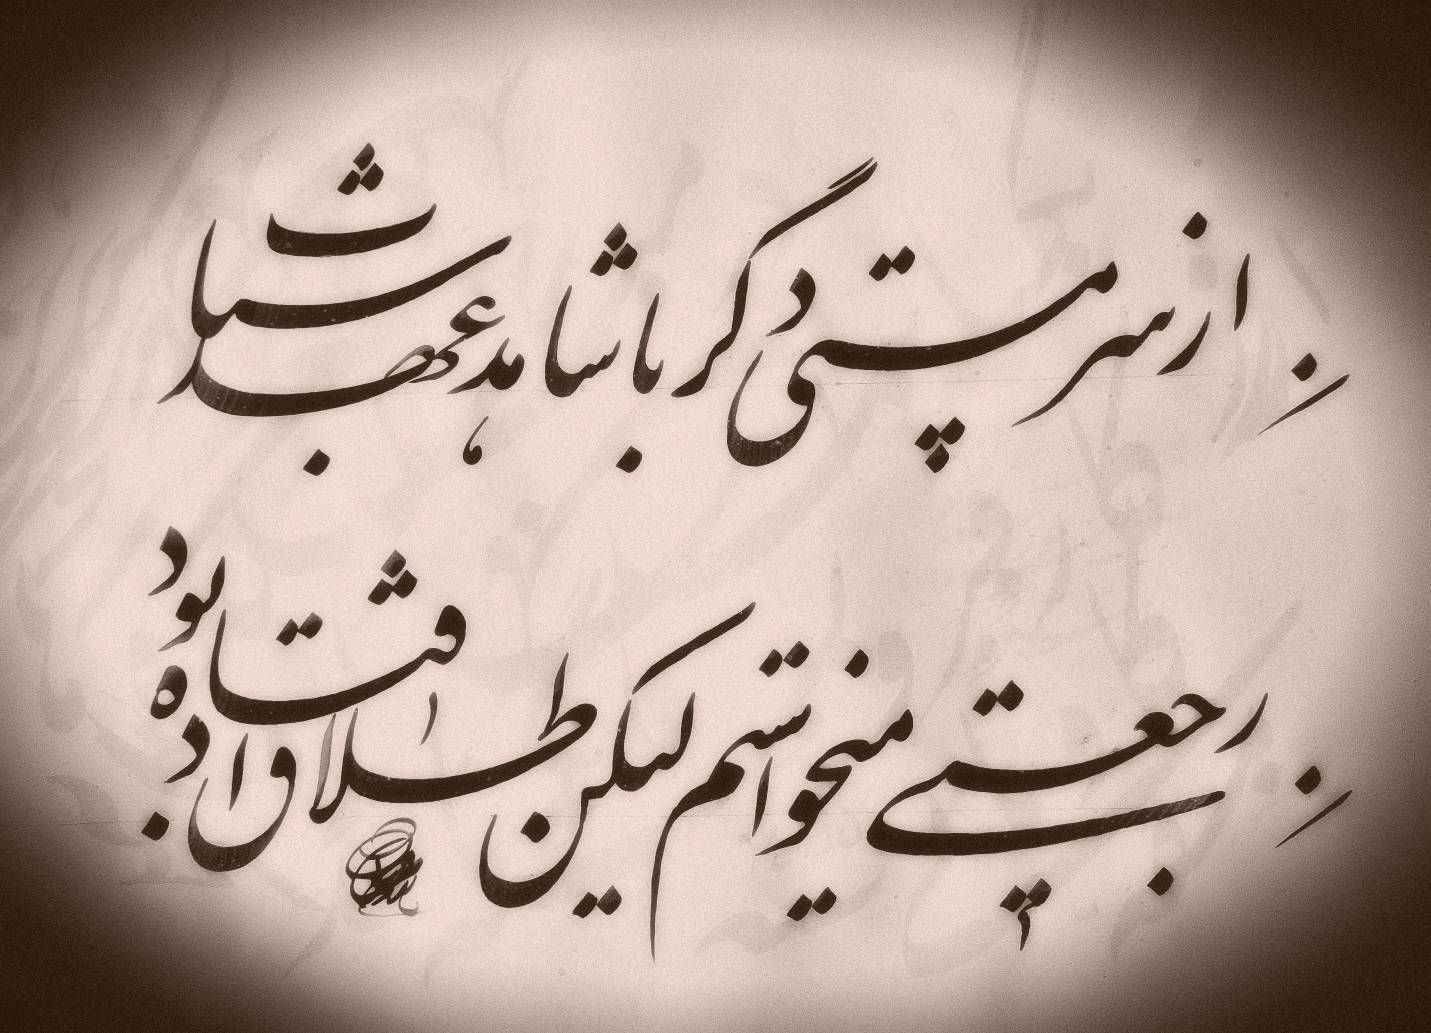 از سر مستی دگر با شاهد عهد شباب
رجعتی میخواستم لیکن طلاق افتاده بود